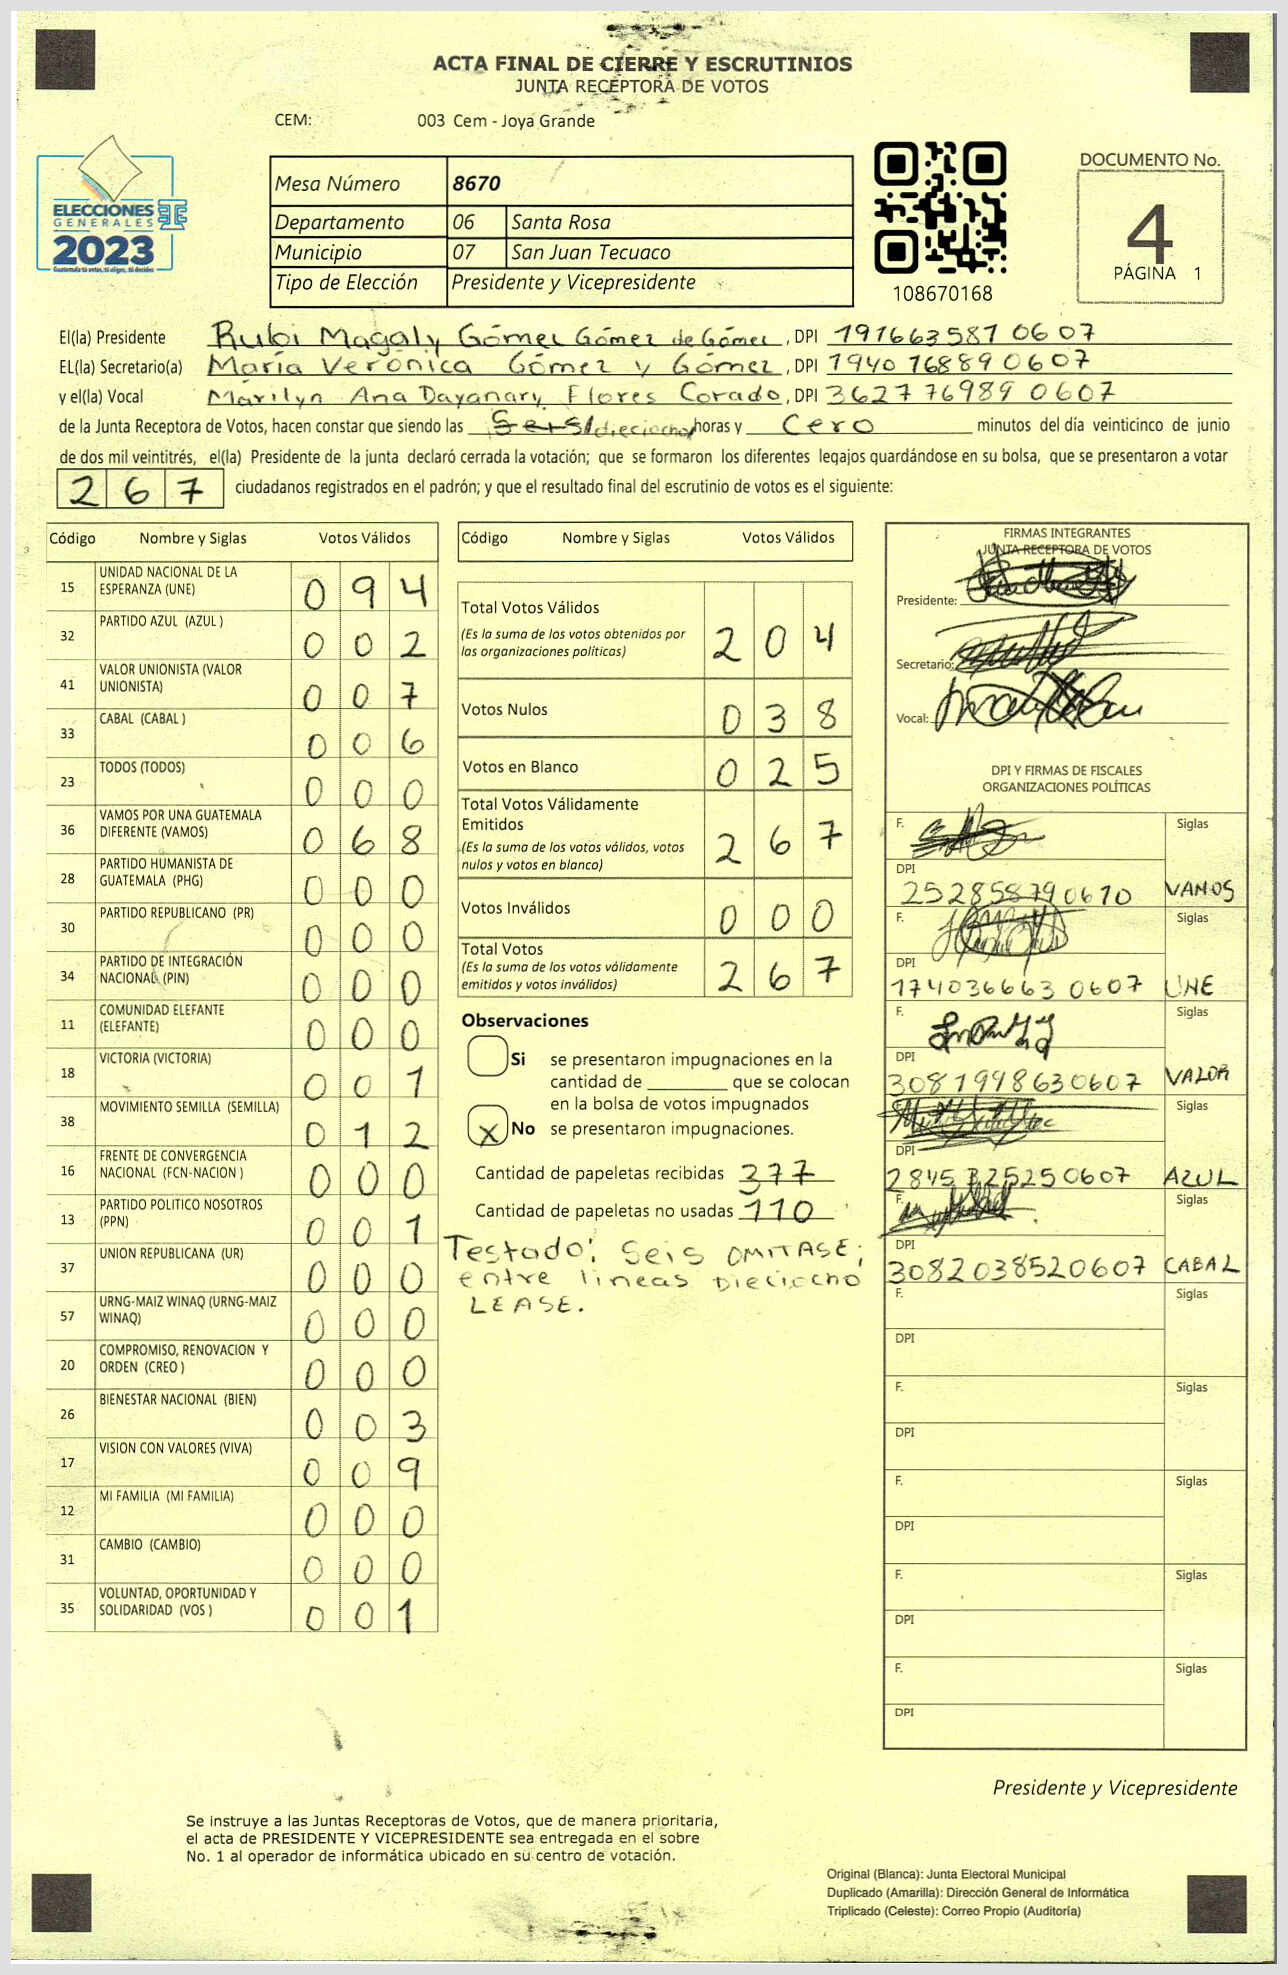 ACTA FINAL DE CIERRE Y ESCRUTINIOS
JUNTA RECEPTORA DE VOTOS
CEM: 003 Cem - Joya Grande
ELECCIONES
GENERALES
2023
Guatemala tú votas, tú eliges, tú decides
Mesa Número 8670
Departamento 06 Santa Rosa
Municipio 07 San Juan Tecuaco
Tipo de Elección Presidente y Vicepresidente
108670168
DOCUMENTO No.
4
PÁGINA 1
El(la) Presidente Rubi Magaly Gómez Gómez de Gómez, DPI 191663581 0607
EL(la) Secretario(a) María Verónica Gómez y Gómez, DPI 1940768890607
y el(la) Vocal Marilyn Ana Dayanary Flores Corado, DPI 362776989 0607
de la Junta Receptora de Votos, hacen constar que siendo las Seis/dieciocho/ horas y Cero minutos del día veinticinco de junio
de dos mil veintitrés, el(la) Presidente de la junta declaró cerrada la votación; que se formaron los diferentes legajos quardándose en su bolsa, que se presentaron a votar
267 ciudadanos registrados en el padrón; y que el resultado final del escrutinio de votos es el siguiente:
Código Nombre y Siglas Votos Válidos
15 UNIDAD NACIONAL DE LA
ESPERANZA (UNE) 094
32 PARTIDO AZUL (AZUL ) 002
41 VALOR UNIONISTA (VALOR
UNIONISTA) 007
33 CABAL (CABAL ) 006
23 TODOS (TODOS) 000
36 VAMOS POR UNA GUATEMALA
DIFERENTE (VAMOS) 068
28 PARTIDO HUMANISTA DE
GUATEMALA (PHG) 000
30 PARTIDO REPUBLICANO (PR) 000
34 PARTIDO DE INTEGRACIÓN
NACIONAL (PIN) 000
11 COMUNIDAD ELEFANTE
(ELEFANTE) 000
18 VICTORIA (VICTORIA) 001
38 MOVIMIENTO SEMILLA (SEMILLA) 012
16 FRENTE DE CONVERGENCIA
NACIONAL (FCN-NACION ) 000
13 PARTIDO POLITICO NOSOTROS
(PPN) 001
37 UNION REPUBLICANA (UR) 000
57 URNG-MAIZ WINAQ (URNG-MAIZ
WINAQ) 000
20 COMPROMISO, RENOVACION Y
ORDEN (CREO ) 000
26 BIENESTAR NACIONAL (BIEN) 003
17 VISION CON VALORES (VIVA) 009
12 MI FAMILIA (MI FAMILIA) 000
31 CAMBIO (CAMBIO) 000
35 VOLUNTAD, OPORTUNIDAD Y
SOLIDARIDAD (VOS ) 001
Código Nombre y Siglas Votos Válidos
Total Votos Válidos
(Es la suma de los votos obtenidos por
las organizaciones políticas) 204
Votos Nulos 038
Votos en Blanco 025
Total Votos Válidamente
Emitidos
(Es la suma de los votos válidos, votos
nulos y votos en blanco) 267
Votos Inválidos 000
Total Votos
(Es la suma de los votos válidamente
emitidos y votos inválidos) 267
Observaciones
Si se presentaron impugnaciones en la
cantidad de ________ que se colocan
en la bolsa de votos impugnados
X No se presentaron impugnaciones.
Cantidad de papeletas recibidas 377
Cantidad de papeletas no usadas 110
Testado: Seis OMITASE;
entre lineas DIECIOCHO
LEASE.
FIRMAS INTEGRANTES
JUNTA RECEPTORA DE VOTOS
Presidente:
Secretario:
Vocal:
DPI Y FIRMAS DE FISCALES
ORGANIZACIONES POLÍTICAS
F. Siglas
DPI
252858790610 VAMOS
F. Siglas
DPI
174036663 0607 UNE
F. Siglas
DPI
3081998630607 VALOR
F. Siglas
DPI
2845325250607 AZUL
F. Siglas
DPI
3082038520607 CABAL
F. Siglas
DPI
F. Siglas
DPI
F. Siglas
DPI
F. Siglas
DPI
F. Siglas
DPI
Presidente y Vicepresidente
Se instruye a las Juntas Receptoras de Votos, que de manera prioritaria,
el acta de PRESIDENTE Y VICEPRESIDENTE sea entregada en el sobre
No. 1 al operador de informática ubicado en su centro de votación.
Original (Blanca): Junta Electoral Municipal
Duplicado (Amarilla): Dirección General de Informática
Triplicado (Celeste): Correo Propio (Auditoría)